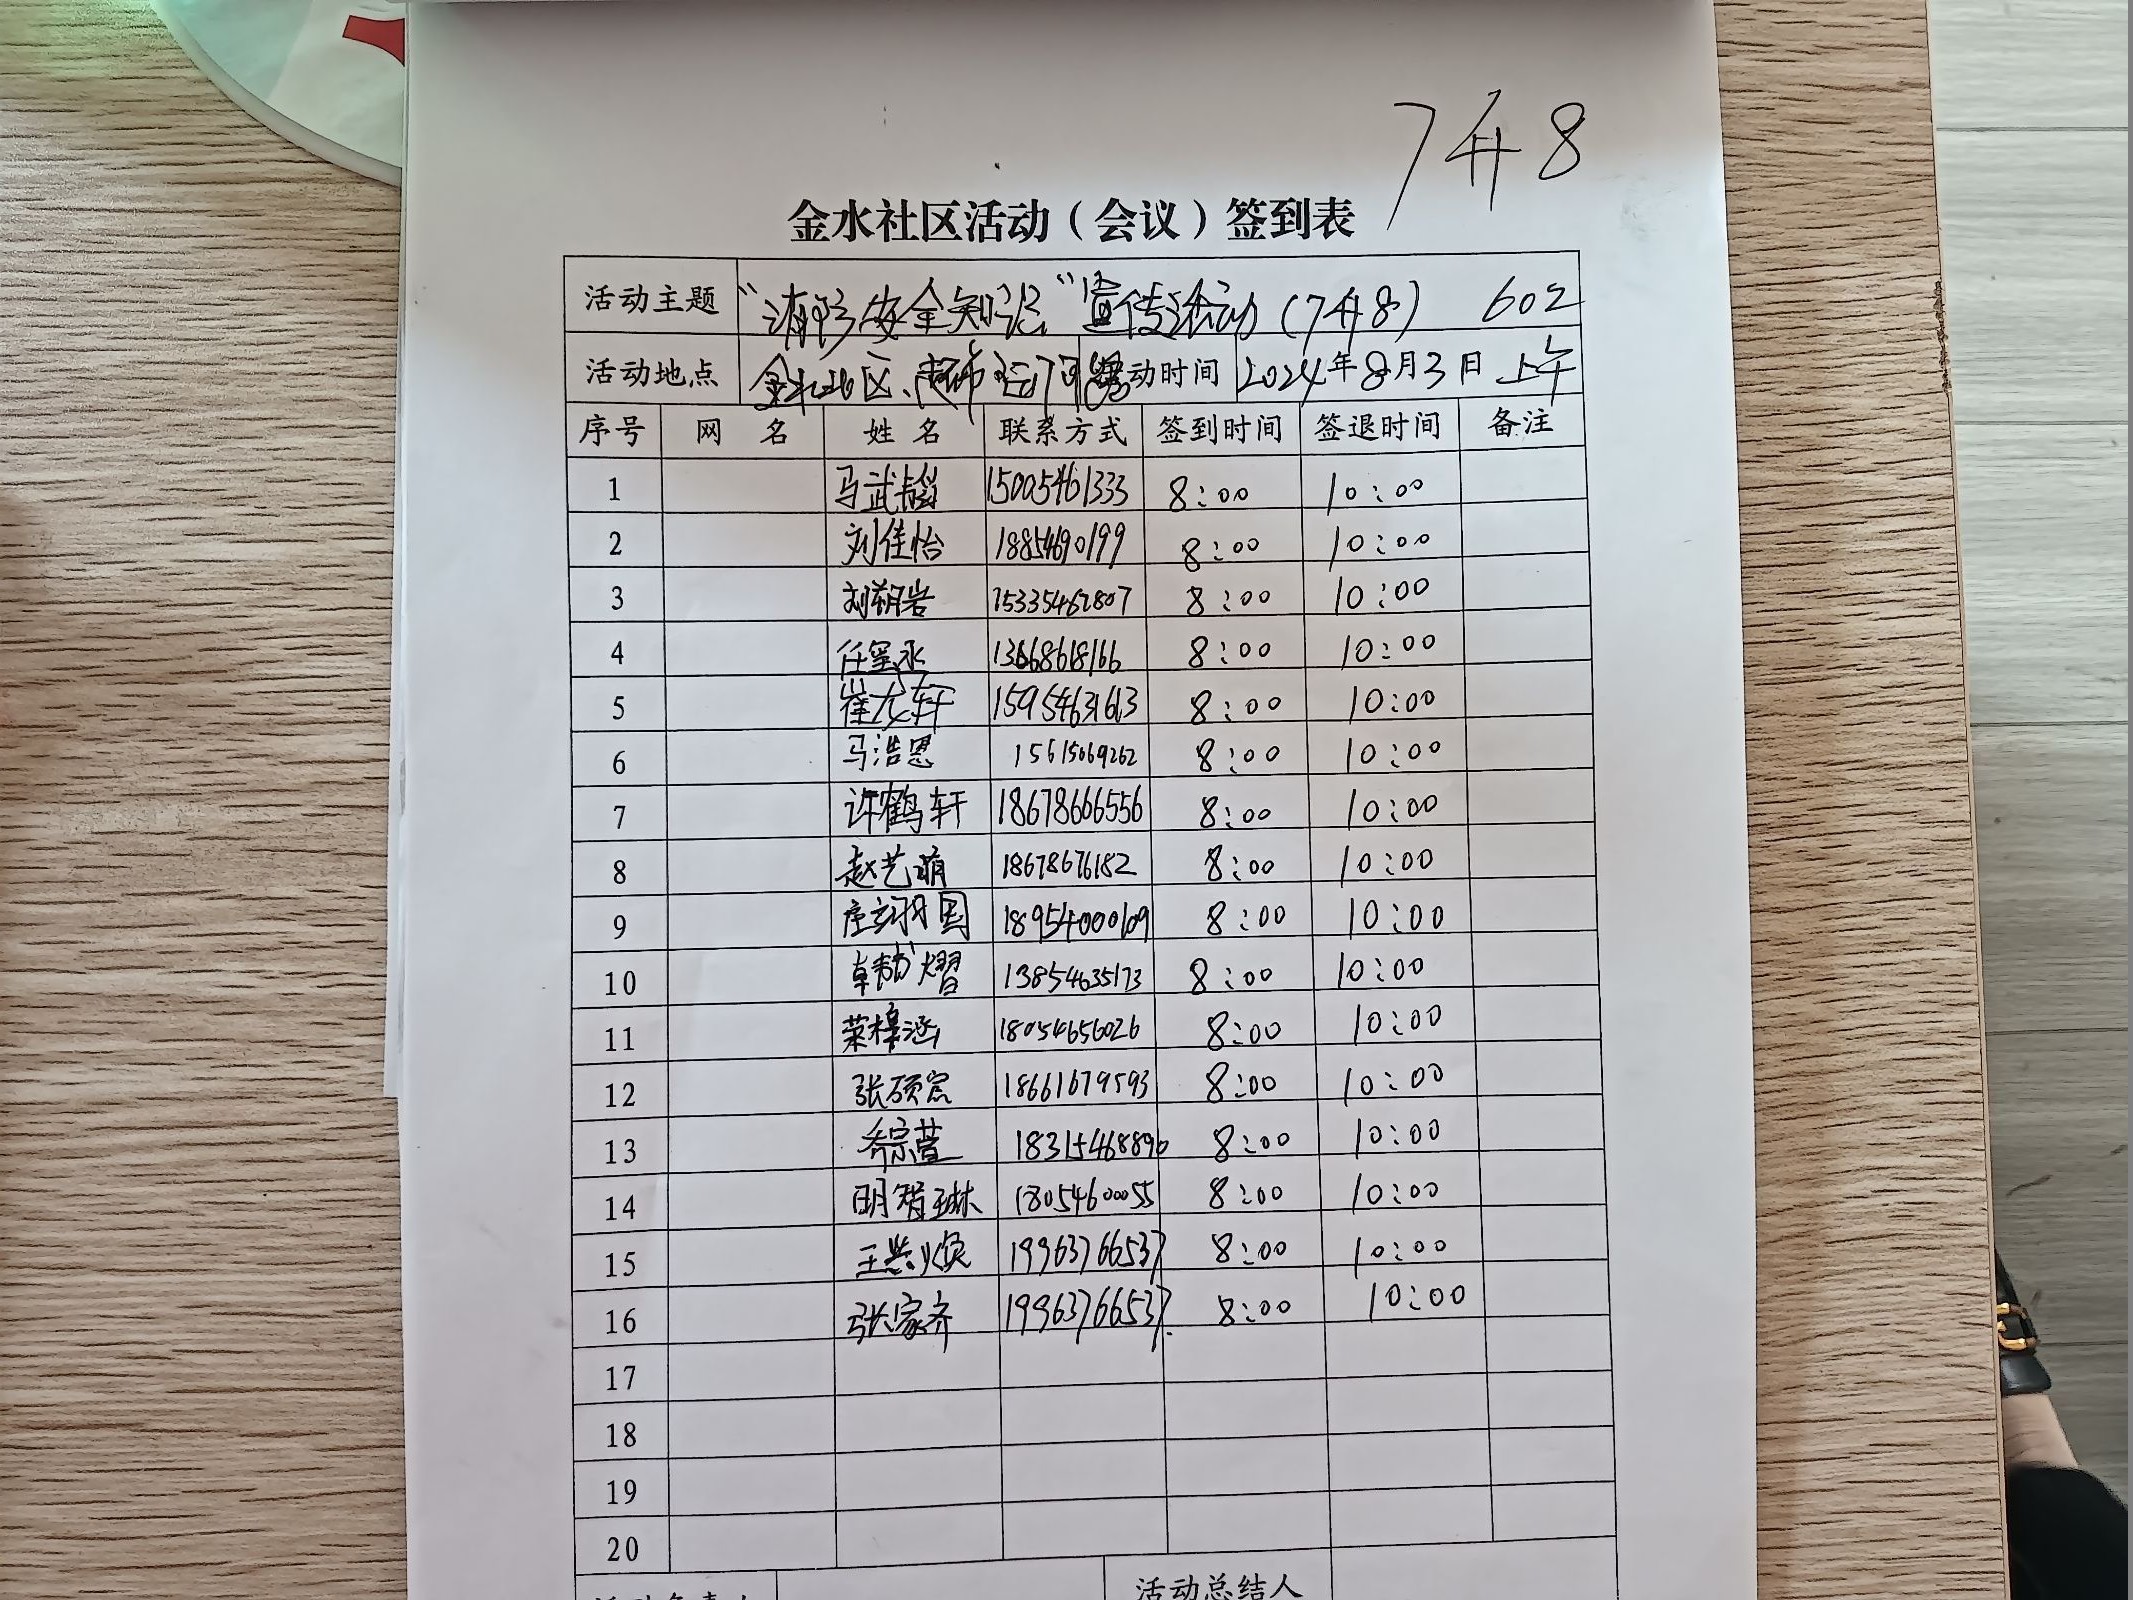 7升8
金水社区活动（会议）签到表
活动主题 “消防安全知识”宣传活动（7升8） 602
活动地点 金水社区、 活动时间 2024年8月3日 上午
序号 网 名 姓 名 联系方式 签到时间 签退时间 备注
1 马武 15005461333 8:00 10:00
2 刘佳怡 18854690199 8:00 10:00
3 刘朔岩 15335462807 8:00 10:00
4 任玺永 13668618166 8:00 10:00
5 崔龙轩 15954631613 8:00 10:00
6 马浩恩 15615069262 8:00 10:00
7 许鹤轩 18678666556 8:00 10:00
8 赵艺萌 18678676182 8:00 10:00
9 18954000109 8:00 10:00
10 熠 13854635173 8:00 10:00
11 荣樟涵 18054656026 8:00 10:00
12 张硕宸 18661679593 8:00 10:00
13 乔宗萱 18315468890 8:00 10:00
14 明智琳 18054600055 8:00 10:00
15 王 焕 19963766537 8:00 10:00
16 张家齐 19963766537 8:00 10:00
17
18
19
20
活动总结人